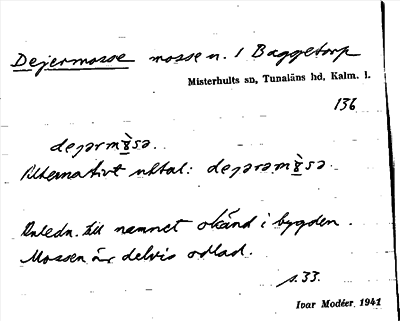 Dejermosse mosse n. 1 Baggetorp
Misterhults sn, Tunaläns hd, Kalm. l.
136
dejərmꝏ̀sə.
Alternativt uttal: dejərəmꝏ̀sə.
Anledn. till namnet okänd i bygden.
Mossen är delvis odlad.
s. 33.
Ivar Modéer 1941